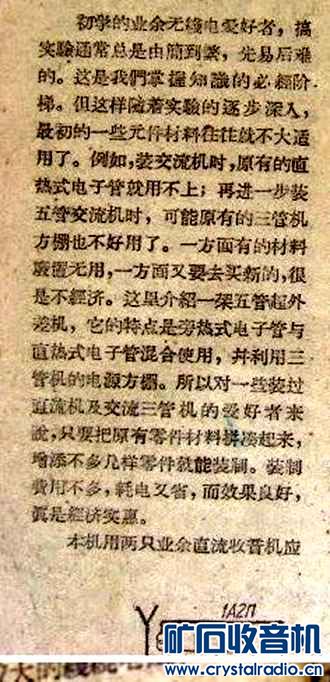 初学的业余无线电爱好者，搞
实驗通常总是由簡到繁，先易后难
的。这是我們掌握知識的必經阶
梯。但这样随着实驗的逐步深入，
最初的一些元件材料往往就不大适
用了。例如，装交流机时，原有的直
热式电子管就用不上；再进一步装
五管交流机时，可能原有的三管机
方棚也不好用了。一方面有的材料
廢置无用，一方面又要去买新的，很
是不經济。这里介紹一架五管超外
差机，它的特点是旁热式电子管与
直热式电子管混合使用，幷利用三
管机的电源方棚。所以对一些装过
直流机及交流三管机的爱好者来
說，只要把原有零件材料拼凑起来，
增添不多几样零件就能装制。装制
費用不多，耗电又省，而效果良好，
眞是經济实惠。
本机用两只业余直流收音机应
1A2П
矿石收音机
www.crystalradio.cn